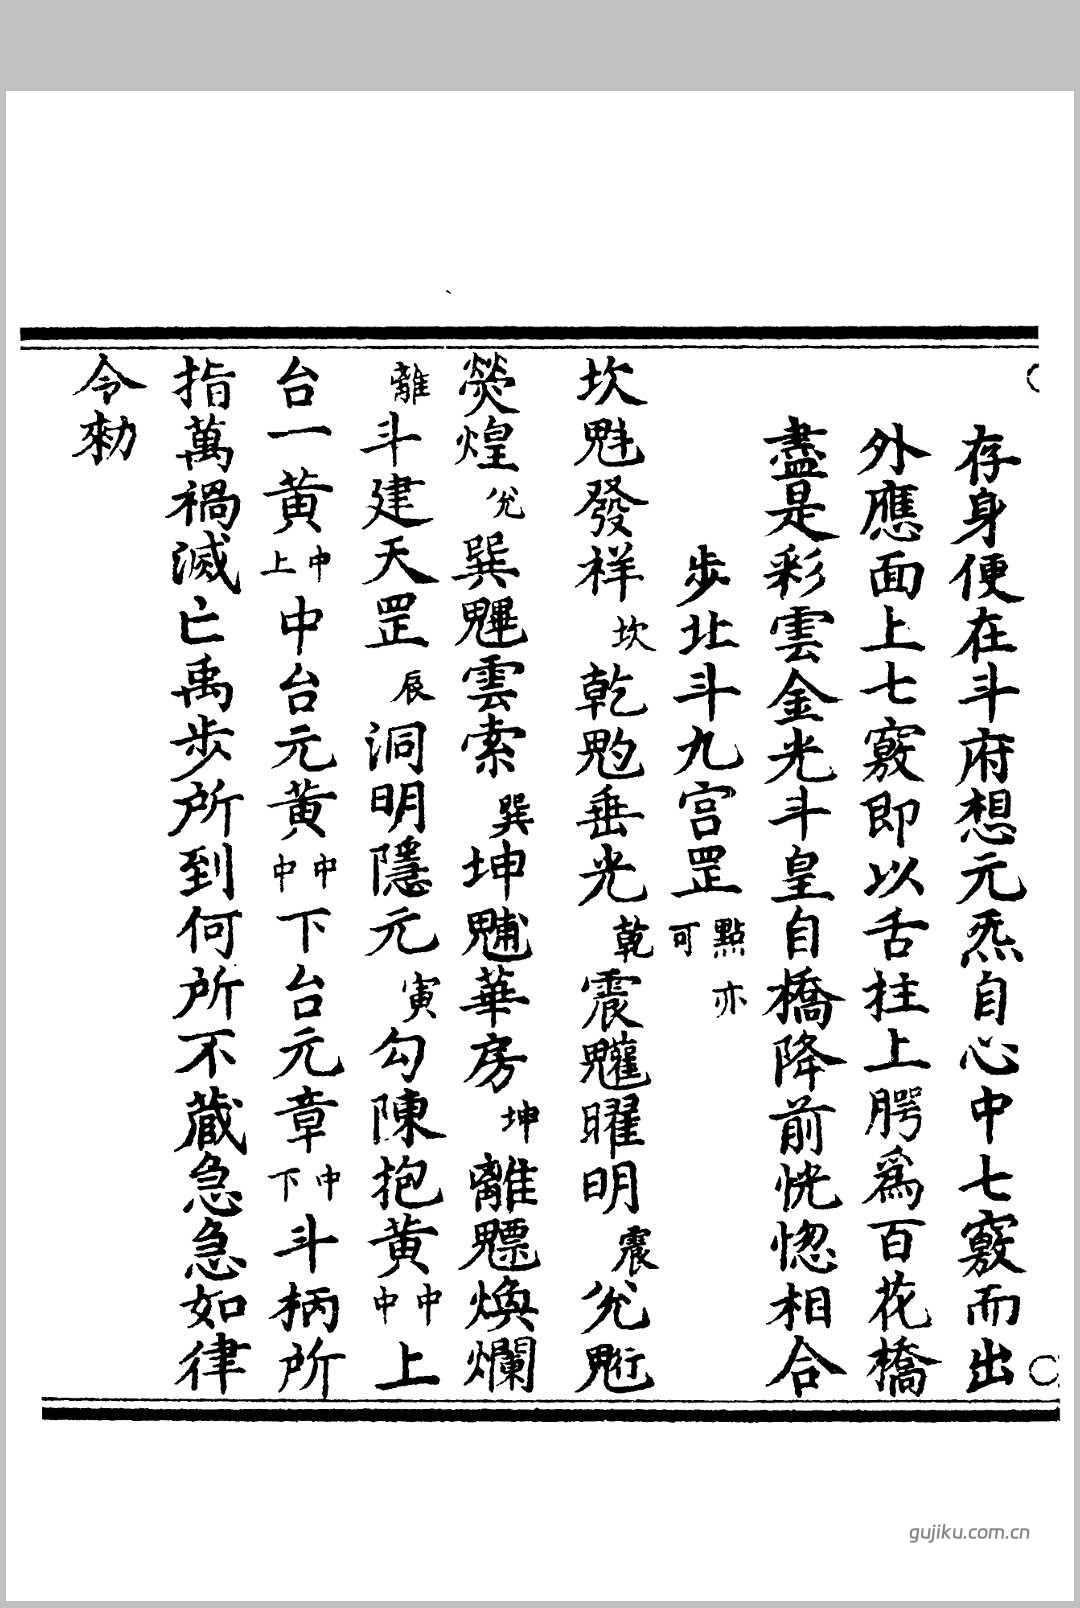 存身便在斗府想元炁自心中七竅而出
外應面上七竅即以舌拄上腭爲百花橋
盡是彩雲金光斗皇自橋降前恍惚相合
步北斗九宫罡點亦可
坎魁發祥坎乾魡垂光乾震䰢曜明震兊䰢
熒煌兊巽魓雲索巽坤䰷華房坤離魒煥爛
離斗建天罡辰洞明隱元寅勾陳抱黃中中上
台一黃中上中台元黃中中下台元章中下斗柄所
指萬禍滅亡禹步所到何所不蔵急急如律
令勑
gujiku.com.cn